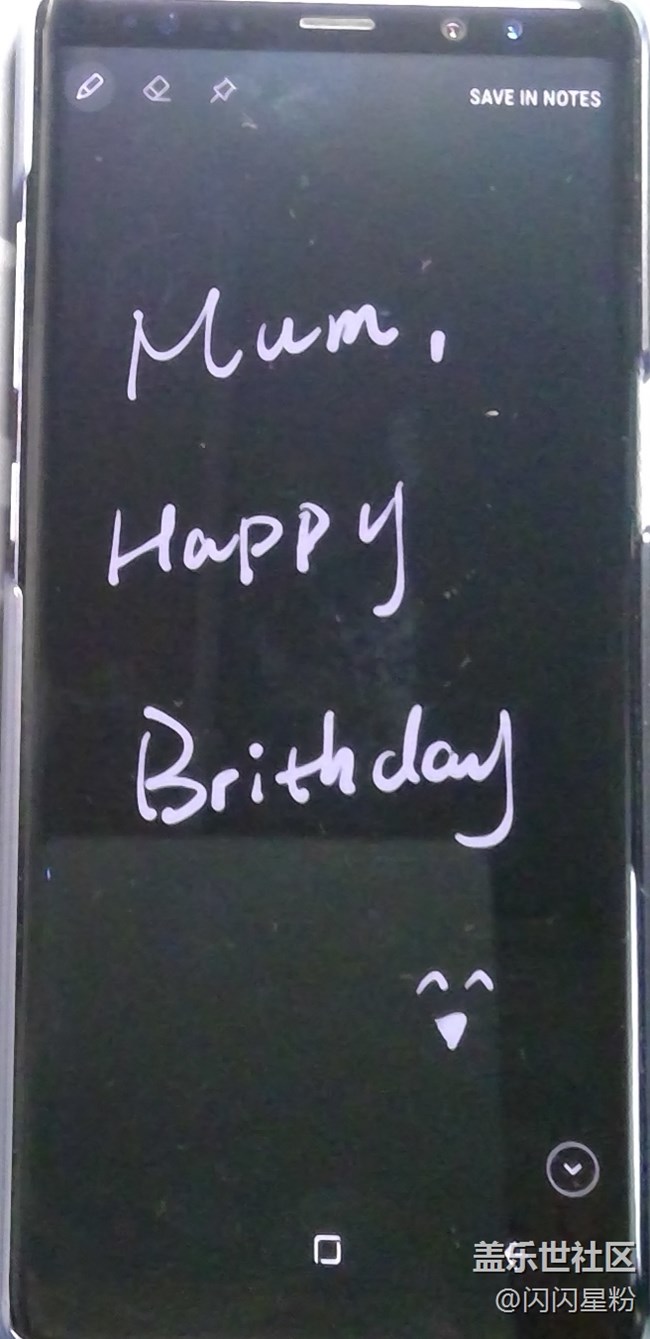 SAVE IN NOTES
Mum,
Happy
Brithday
盖乐世社区
@闪闪星粉